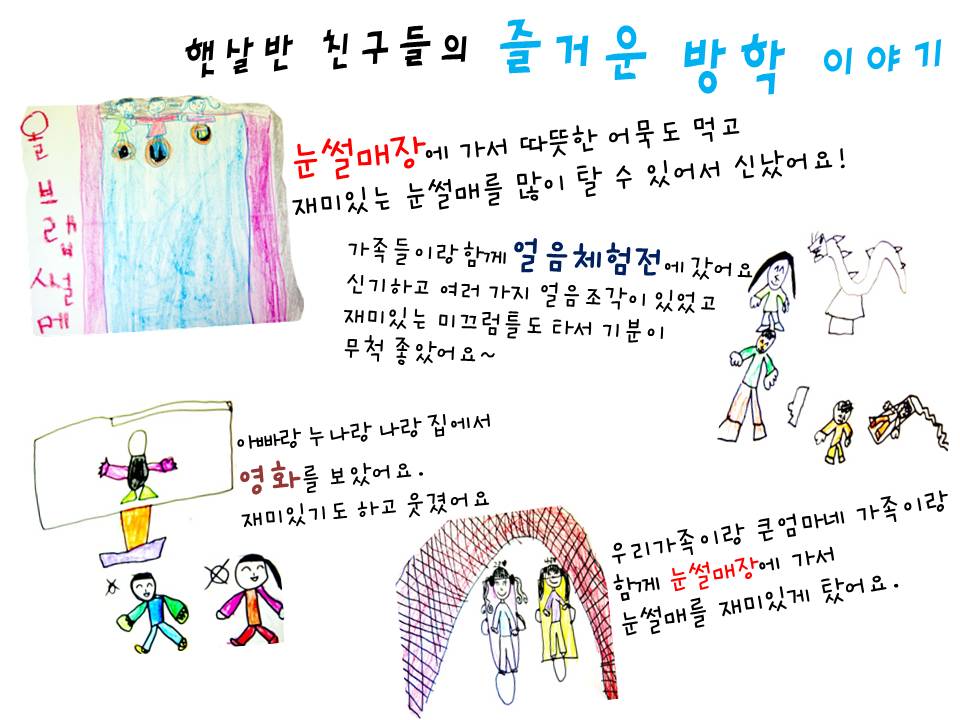 햇살반 친구들의 즐거운 방학 이야기
올
브랩
썰
메
눈썰매장에 가서 따뜻한 어묵도 먹고
재미있는 눈썰매를 많이 탈 수 있어서 신났어요!
가족들이랑함께 얼음체험전에갔어요
신기하고 여러 가지 얼음조각이 있었고
재미있는 미끄럼틀도 타서 기분이
무척 좋았어요~
아빠랑 누나랑 나랑 집에서
영화를 보았어요.
재미있기도 하고 웃겼어요
우리가족이랑 큰엄마네 가족이랑
함께 눈썰매장에 가서
눈썰매를 재미있게 탔어요.